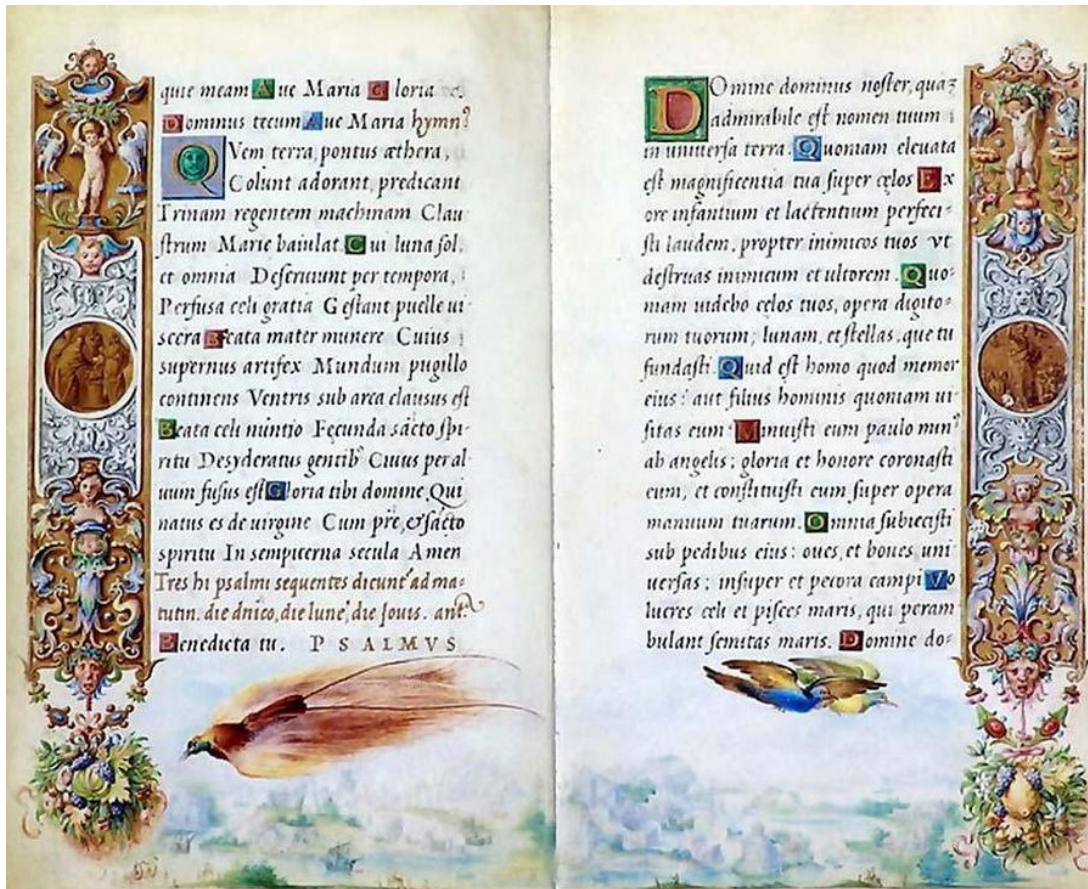 quie meam Aue Maria Gloria
Dominus tecum Aue Maria hymn⁹
QVem terra, pontus æthera,
Colunt adorant, predicant
Trinam regentem machinam Clau
strum Marie baiulat. Cui luna sol,
et omnia Deseruiunt per tempora,
Perfusa celi gratia Gestant puelle ui
scera Beata mater munere Cuius
supernus artifex Mundum pugillo
continens Ventris sub arca clausus est
Beata celi nuntio Fęcunda sācto spi-
ritu Desyderatus gentib⁹ Cuius per al
uum fusus est Gloria tibi domine, Qui
natus es de uirgine Cum pre, et sācto
spiritu In sempiterna secula Amen
Tres hi psalmi sequentes dicunt̄ ad ma-
tutin. die dnico, die lune, die Iouis. ant.
Benedicta tu. PSALMVS
DOmine dominus noster, quaʒ
admirabile est nomen tuum
in uniuersa terra. Quoniam eleuata
est magnificentia tua super cęlos Ex
ore infantium et lactentium perfeci-
sti laudem, propter inimicos tuos vt
destruas inimicum et ultorem. Quo-
niam uidebo cęlos tuos, opera digito-
rum tuorum; lunam, et stellas, que tu
fundasti. Quid est homo quod memor
eius: aut filius hominis quoniam ui-
sitas eum. Minuisti eum paulo min⁹
ab angelis; gloria et honore coronasti
eum, et constituisti eum super opera
manuum tuarum. Omnia subiecisti
sub pedibus eius: oues, et boues uni
uersas; insuper et pecora campi Vo
lucres celi et pisces maris, qui peram
bulant semitas maris. Domine do-